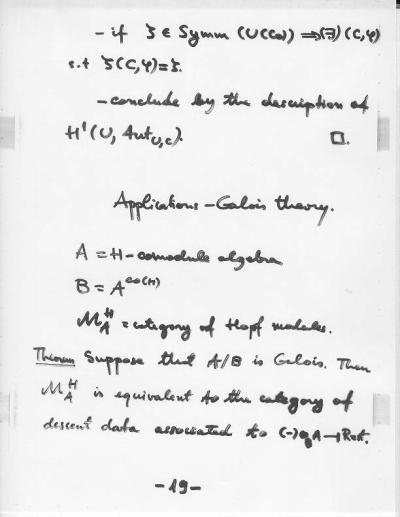 - if ζ ∈ Symm (U(C₀)) ⇒ (∃) (C,φ)
s.t ζ(C,φ)=ζ.
- conclude by the description of
H¹(U, Aut_{U,C}). □.
Applications - Galois theory.
A = H-comodule algebra
B = A^{co(H)}
M_A^H = category of Hopf modules.
Theorem Suppose that A/B is Galois. Then
M_A^H is equivalent to the category of
descent data associated to (-)⊗_B A →
-19-